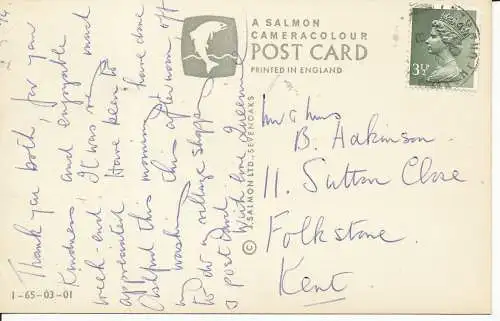 2.3.74
Thank you both, for your
kindness, and enjoyable
week-end. It was very much
appreciated. Have been to
Ashford this morning, have done
washing this afternoon, off
to do village shopping
& post card.
With love Queenie
1-65-03-01
A SALMON
CAMERACOLOUR
POST CARD
PRINTED IN ENGLAND
© J. SALMON LTD., SEVENOAKS
3½P
Mr & Mrs
B. Adkinson
11. Sutton Close
Folkstone.
Kent.